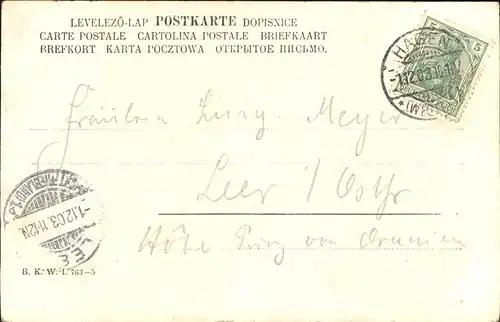 LEVELEZŐ-LAP POSTKARTE DOPISNICE
CARTE POSTALE CARTOLINA POSTALE BRIEFKAART
BREFKORT KARTA POCZTOWA ОТКРЫТОЕ ПИСЬМО.
5
HAGEN
1.12.03.
Fräulein Meyer
Leer i/Ostfr.
Hôtel Prinz von Oranien
1.12.03. 11-12N.
B. K. W. I. 763-5